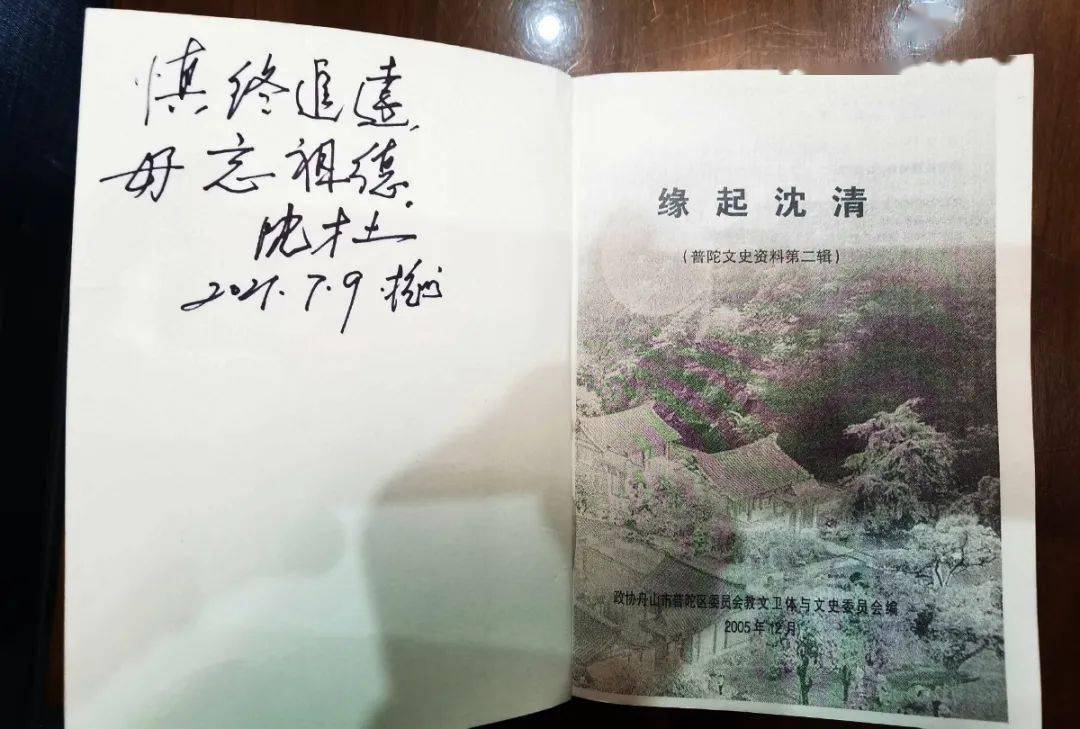 慎终追遠,
毋忘祖德.
沈才土
2021.7.9.
缘起沈清
(普陀文史资料第二辑)
政协舟山市普陀区委员会教文卫体与文史委员会编
2005年12月